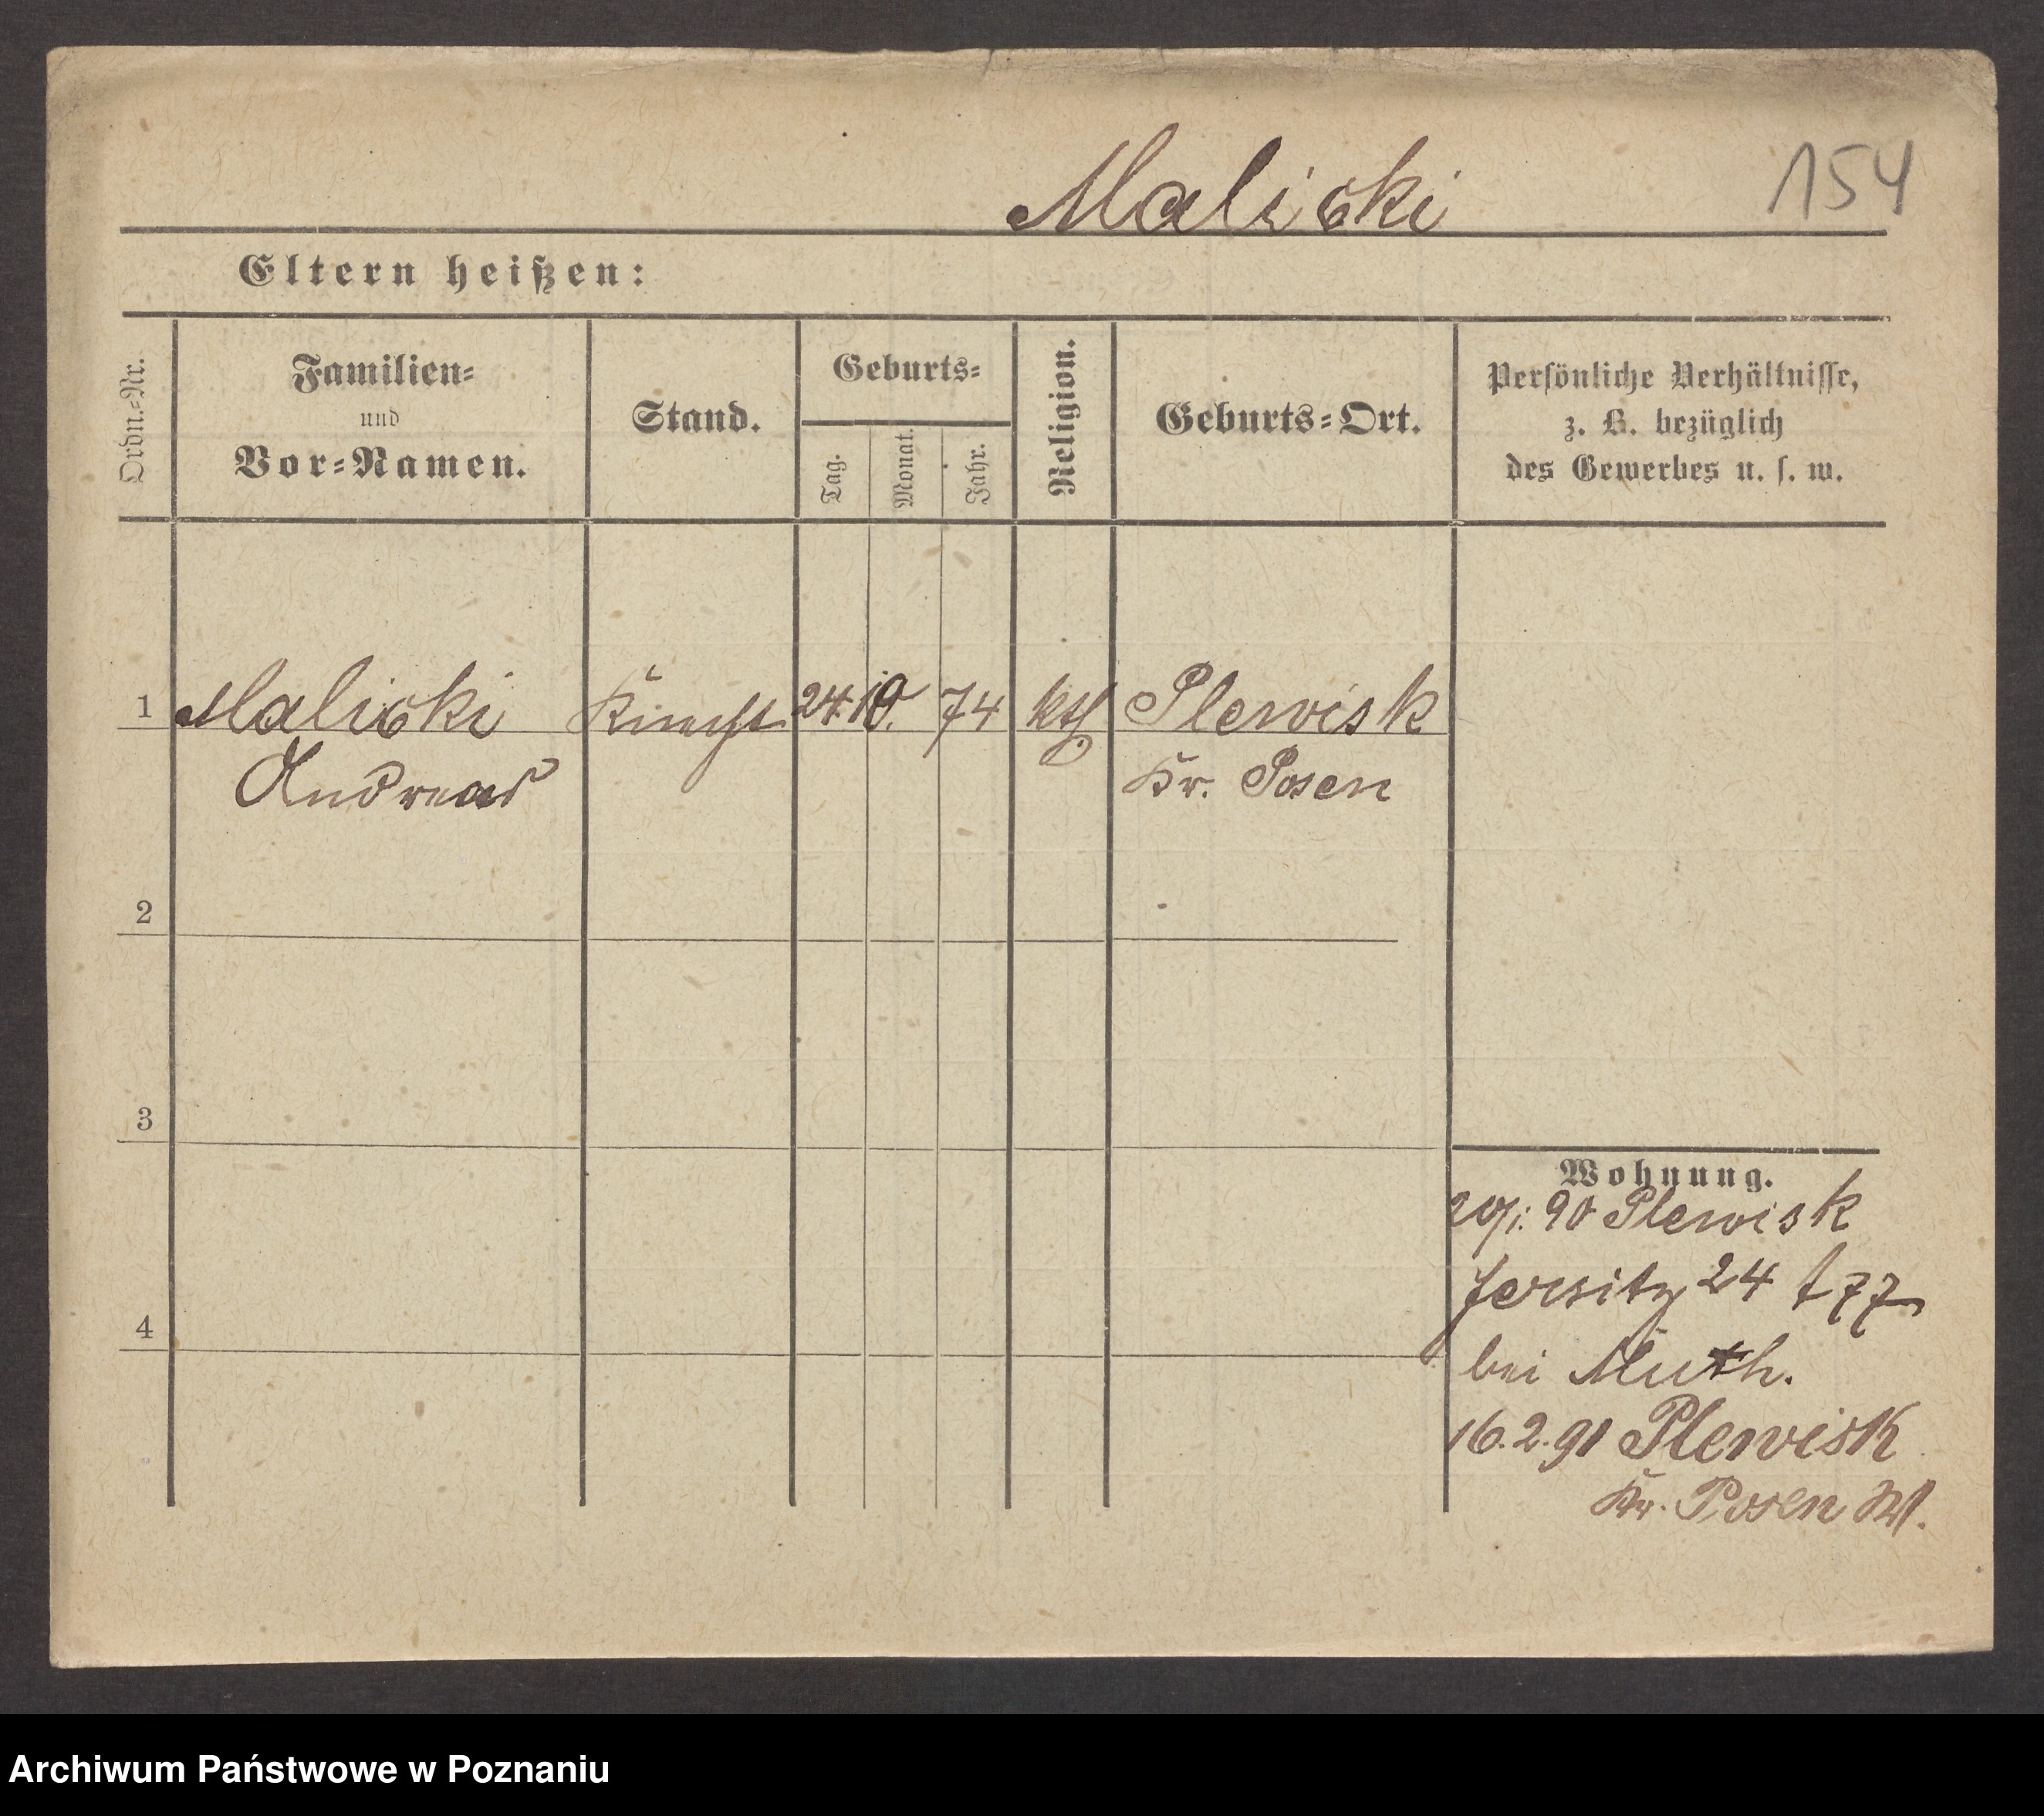 Malicki 154
Eltern heißen:
Ordn.-Nr.
Familien-
und
Vor-Namen.
Stand.
Geburts-
Tag.
Monat.
Jahr.
Religion.
Geburts-Ort.
Persönliche Verhältnisse,
z. B. bezüglich
des Gewerbes u. s. w.
1 Malicki Knecht 24. 10. 74 kth Plewisk
Andreas Kr. Posen
2
3
4
Wohnung.
90 Plewisk
Jersitz 24 77
bei Muth.
16. 2. 91 Plewisk
Kr. Posen W.
Archiwum Państwowe w Poznaniu